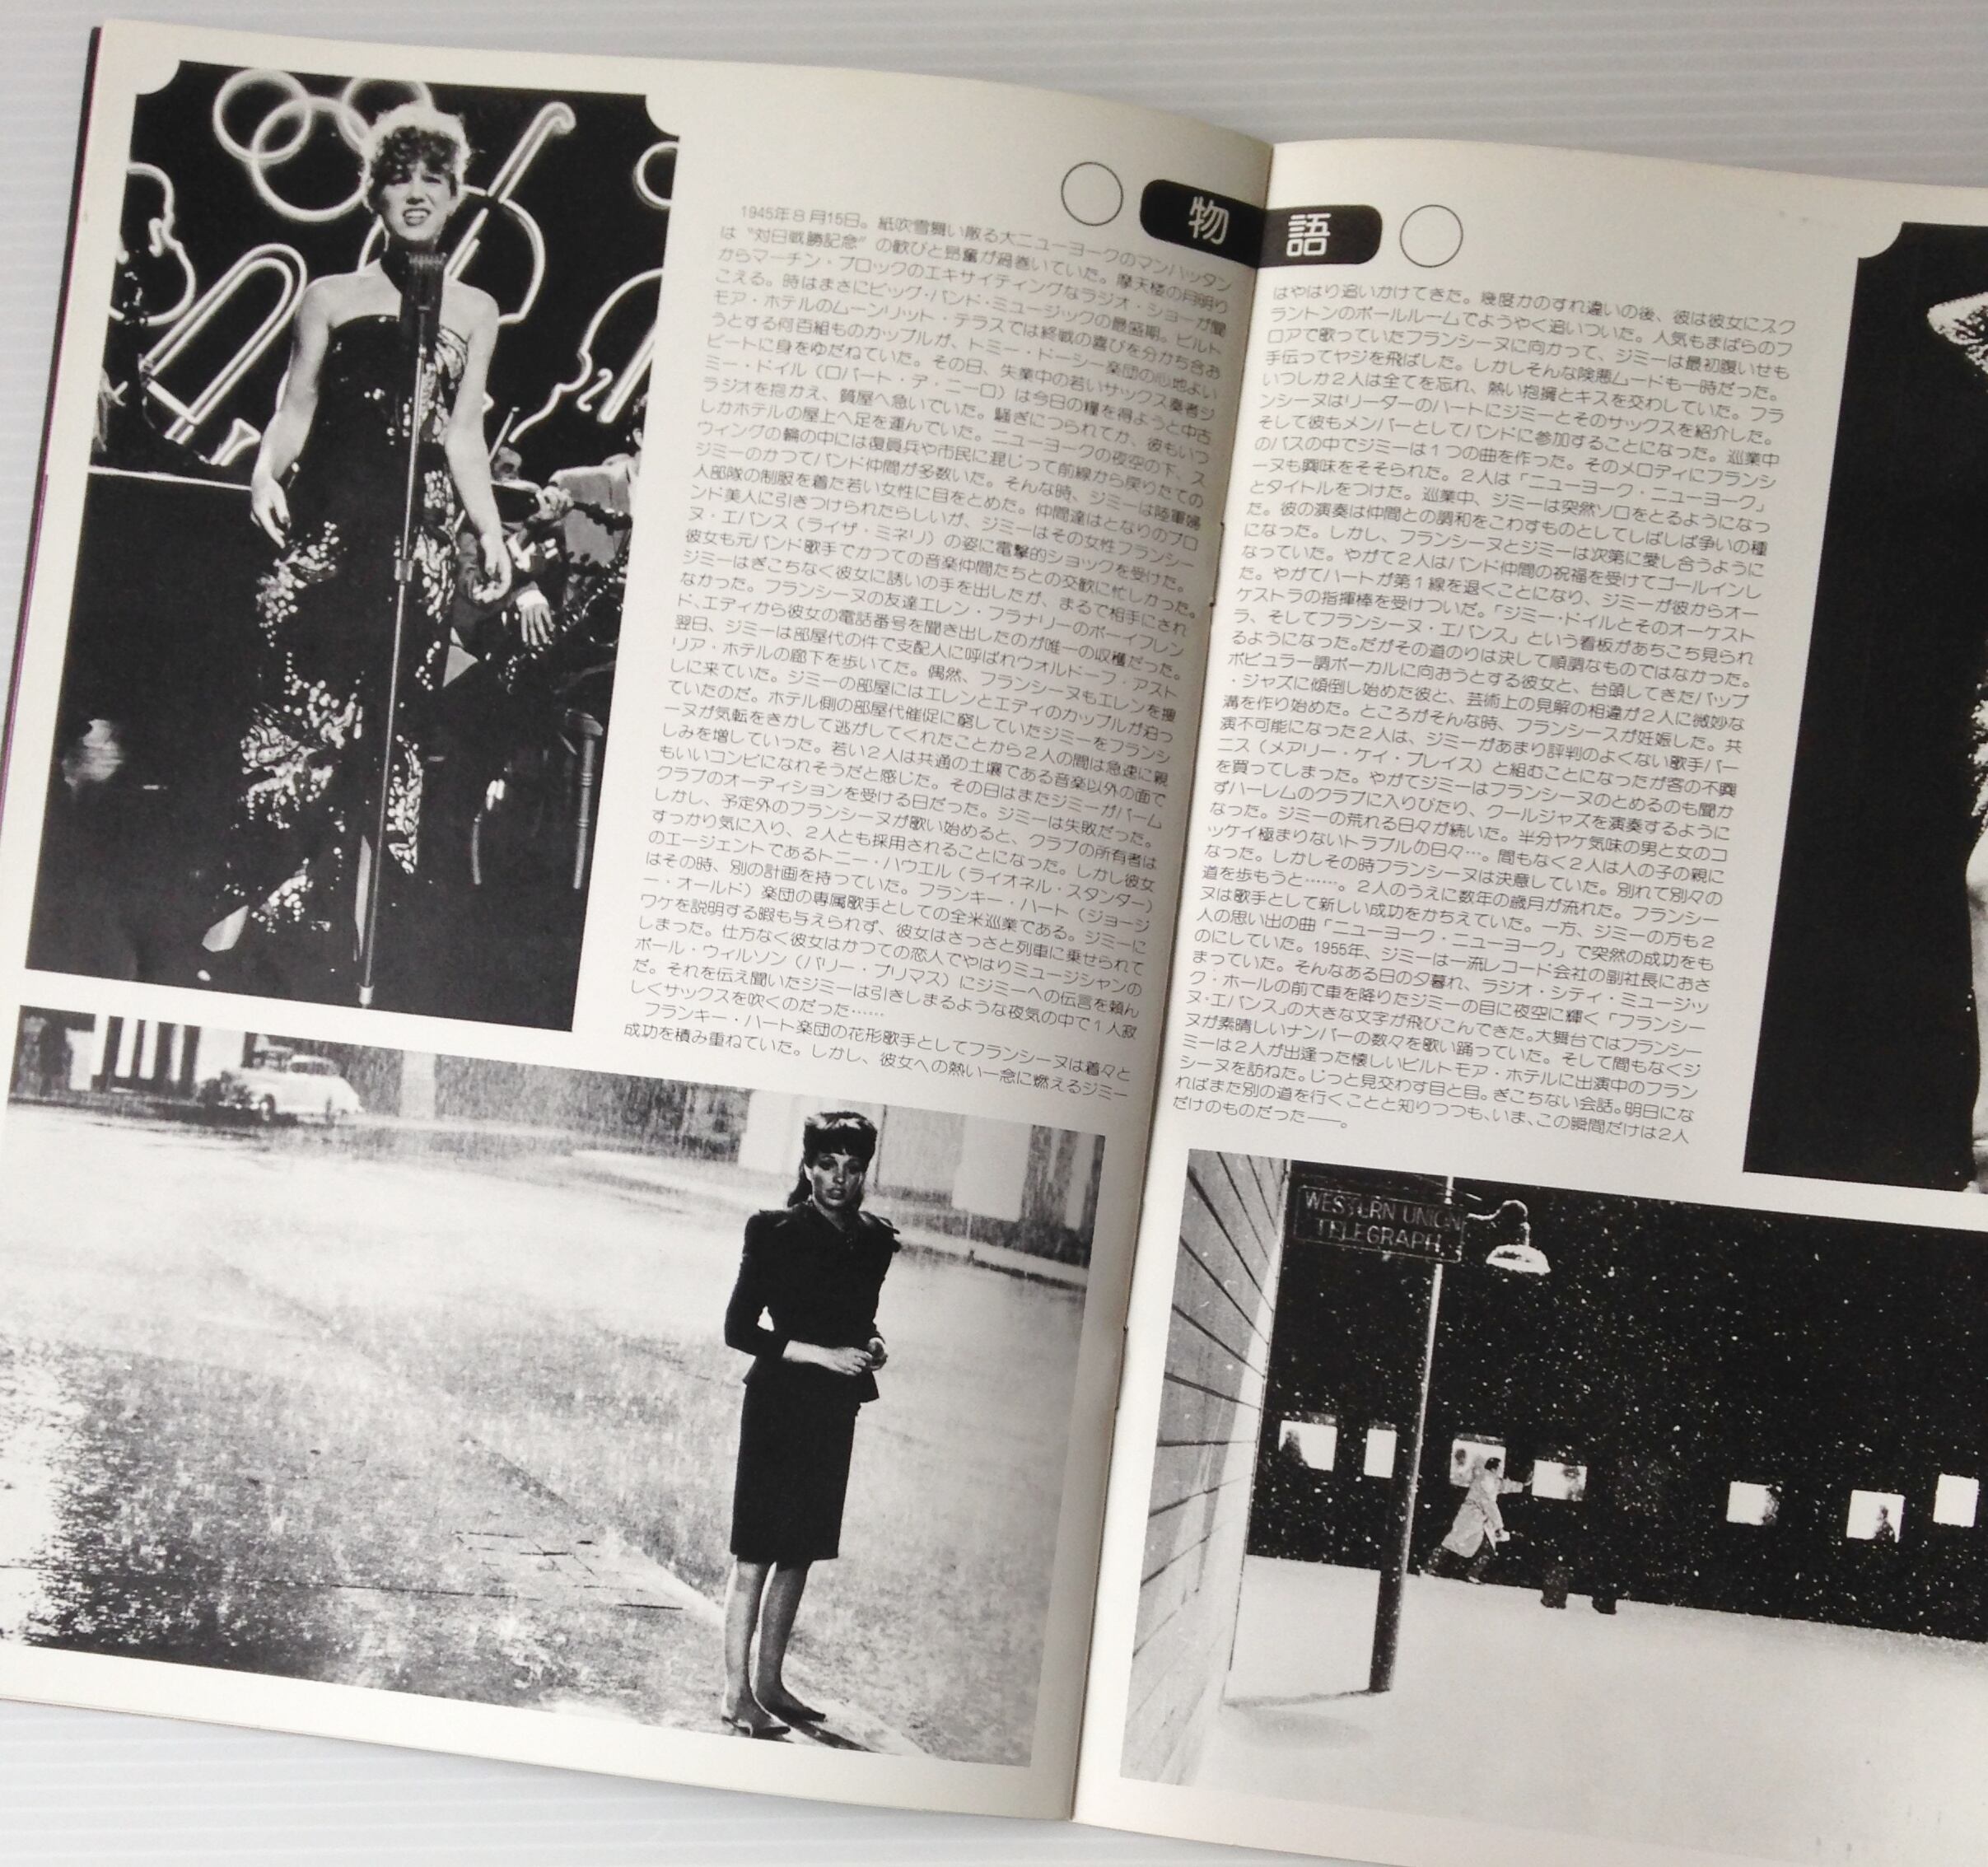 物語
1945年8月15日。紙吹雪舞い散る大ニューヨークのマンハッタン
は“対日戦勝記念”の歓びと昂奮が渦巻いていた。摩天楼の月明り
からマーチン・ブロックのエキサイティングなラジオ・ショーが聞
こえる。時はまさにビッグ・バンド・ミュージックの最盛期。ビルト
モア・ホテルのムーンリット・テラスでは終戦の喜びを分かち合お
うとする何百組ものカップルが、トミー・ドーシー楽団の心地よい
ビートに身をゆだねていた。その日、失業中の若いサックス奏者ジ
ミー・ドイル（ロバート・デ・ニーロ）は今日の糧を得ようと中古
ラジオを抱かえ、質屋へ急いでいた。騒ぎにつられてか、彼もいつ
しかホテルの屋上へ足を運んでいた。ニューヨークの夜空の下、ス
ウィングの輪の中には復員兵や市民に混じって前線から戻りたての
ジミーのかつてバンド仲間が多数いた。そんな時、ジミーは陸軍婦
人部隊の制服を着た若い女性に目をとめた。仲間達はとなりのブロ
ンド美人に引きつけられたらしいが、ジミーはその女性フランシー
ヌ・エバンス（ライザ・ミネリ）の姿に電撃的ショックを受けた。
彼女も元バンド歌手でかつての音楽仲間たちとの交歓に忙しかった。
ジミーはぎこちなく彼女に誘いの手を出したが、まるで相手にされ
なかった。フランシーヌの友達エレン・フラナリーのボーイフレン
ド、エディから彼女の電話番号を聞き出したのが唯一の収穫だった。
翌日、ジミーは部屋代の件で支配人に呼ばれウォルドーフ・アスト
リア・ホテルの廊下を歩いてた。偶然、フランシーヌもエレンを捜
しに来ていた。ジミーの部屋にはエレンとエディのカップルが泊っ
ていたのだ。ホテル側の部屋代催促に窮していたジミーをフランシ
ーヌが気転をきかして逃がしてくれたことから2人の間は急速に親
しみを増していった。若い2人は共通の土壌である音楽以外の面で
もいいコンビになれそうだと感じた。その日はまたジミーがパーム
クラブのオーディションを受ける日だった。ジミーは失敗だった。
しかし、予定外のフランシーヌが歌い始めると、クラブの所有者は
すっかり気に入り、2人とも採用されることになった。しかし彼女
のエージェントであるトニー・ハウエル（ライオネル・スタンダー）
はその時、別の計画を持っていた。フランキー・ハート（ジョージ
ー・オールド）楽団の専属歌手としての全米巡業である。ジミーに
ワケを説明する暇も与えられず、彼女はさっさと列車に乗せられて
しまった。仕方なく彼女はかつての恋人でやはりミュージシャンの
ポール・ウィルソン（バリー・プリマス）にジミーへの伝言を頼ん
だ。それを伝え聞いたジミーは引きしまるような夜気の中で1人寂
しくサックスを吹くのだった……
フランキー・ハート楽団の花形歌手としてフランシーヌは着々と
成功を積み重ねていた。しかし、彼女への熱い一念に燃えるジミー
はやはり追いかけてきた。幾度かのすれ違いの後、彼は彼女にスク
ラントンのボールルームでようやく追いついた。人気もまばらのフ
ロアで歌っていたフランシーヌに向かって、ジミーは最初腹いせも
手伝ってヤジを飛ばした。しかしそんな険悪ムードも一時だった。
いつしか2人は全てを忘れ、熱い抱擁とキスを交わしていた。フラ
ンシーヌはリーダーのハートにジミーとそのサックスを紹介した。
そして彼もメンバーとしてバンドに参加することになった。巡業中
のバスの中でジミーは1つの曲を作った。そのメロディにフランシ
ーヌも興味をそそられた。2人は「ニューヨーク・ニューヨーク」
とタイトルをつけた。巡業中、ジミーは突然ソロをとるようになっ
た。彼の演奏は仲間との調和をこわすものとしてしばしば争いの種
になった。しかし、フランシーヌとジミーは次第に愛し合うように
なっていた。やがて2人はバンド仲間の祝福を受けてゴールインし
た。やがてハートが第1線を退くことになり、ジミーが彼からオー
ケストラの指揮棒を受けついだ。「ジミー・ドイルとそのオーケスト
ラ、そしてフランシーヌ・エバンス」という看板があちこち見られ
るようになった。だがその道のりは決して順調なものではなかった。
ポピュラー調ボーカルに向おうとする彼女と、台頭してきたバップ
・ジャズに傾倒し始めた彼と、芸術上の見解の相違が2人に微妙な
溝を作り始めた。ところがそんな時、フランシースが妊娠した。共
演不可能になった2人は、ジミーがあまり評判のよくない歌手バー
ニス（メアリー・ケイ・プレイス）と組むことになったが客の不興
を買ってしまった。やがてジミーはフランシーヌのとめるのも聞か
ずハーレムのクラブに入りびたり、クールジャズを演奏するように
なった。ジミーの荒れる日々が続いた。半分ヤケ気味の男と女のコ
ッケイ極まりないトラブルの日々…。間もなく2人は人の子の親に
なった。しかしその時フランシーヌは決意していた。別れて別々の
道を歩もうと……。2人のうえに数年の歳月が流れた。フランシー
ヌは歌手として新しい成功をかちえていた。一方、ジミーの方も2
人の思い出の曲「ニューヨーク・ニューヨーク」で突然の成功をも
のにしていた。1955年、ジミーは一流レコード会社の副社長におさ
まっていた。そんなある日の夕暮れ、ラジオ・シティ・ミュージッ
ク・ホールの前で車を降りたジミーの目に夜空に輝く「フランシー
ヌ・エバンス」の大きな文字が飛びこんできた。大舞台ではフランシー
ヌが素晴しいナンバーの数々を歌い踊っていた。そして間もなくジ
ミーは2人が出逢った懐しいビルトモア・ホテルに出演中のフラン
シーヌを訪ねた。じっと見交わす目と目。ぎこちない会話。明日にな
ればまた別の道を行くことと知りつつも、いま、この瞬間だけは2人
だけのものだった――。
WESTERN UNION
TELEGRAPH